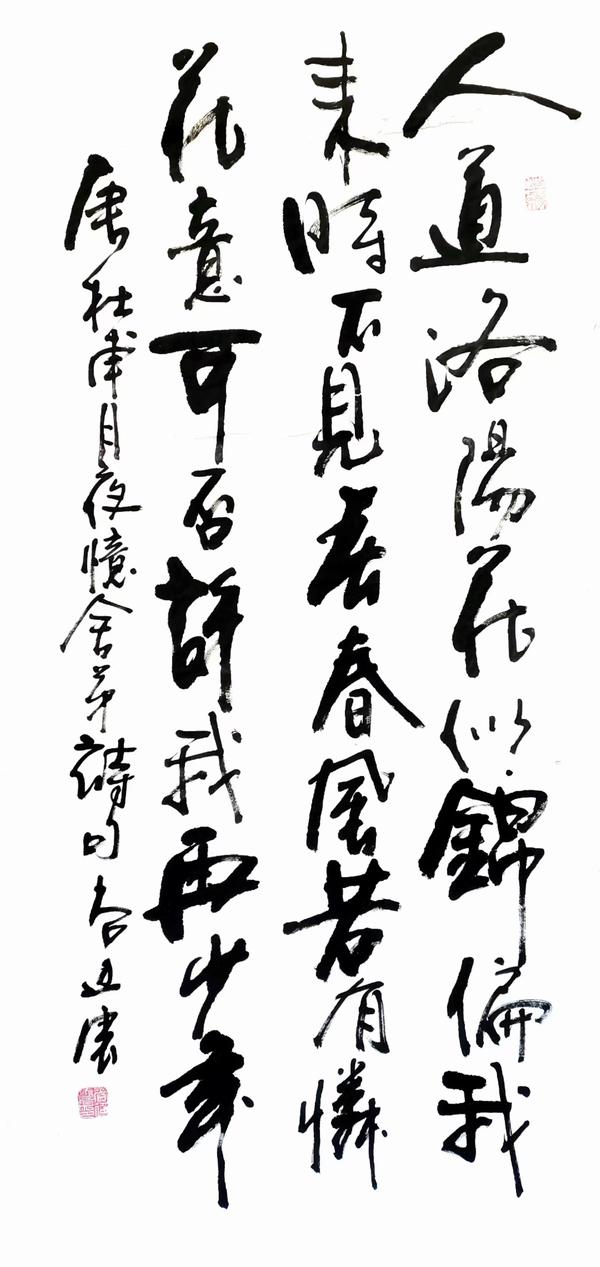 人道洛陽花似錦偏我
来時不見春春風若有憐
花意可否許我再少年
唐杜甫月夜憶舍弟詩句